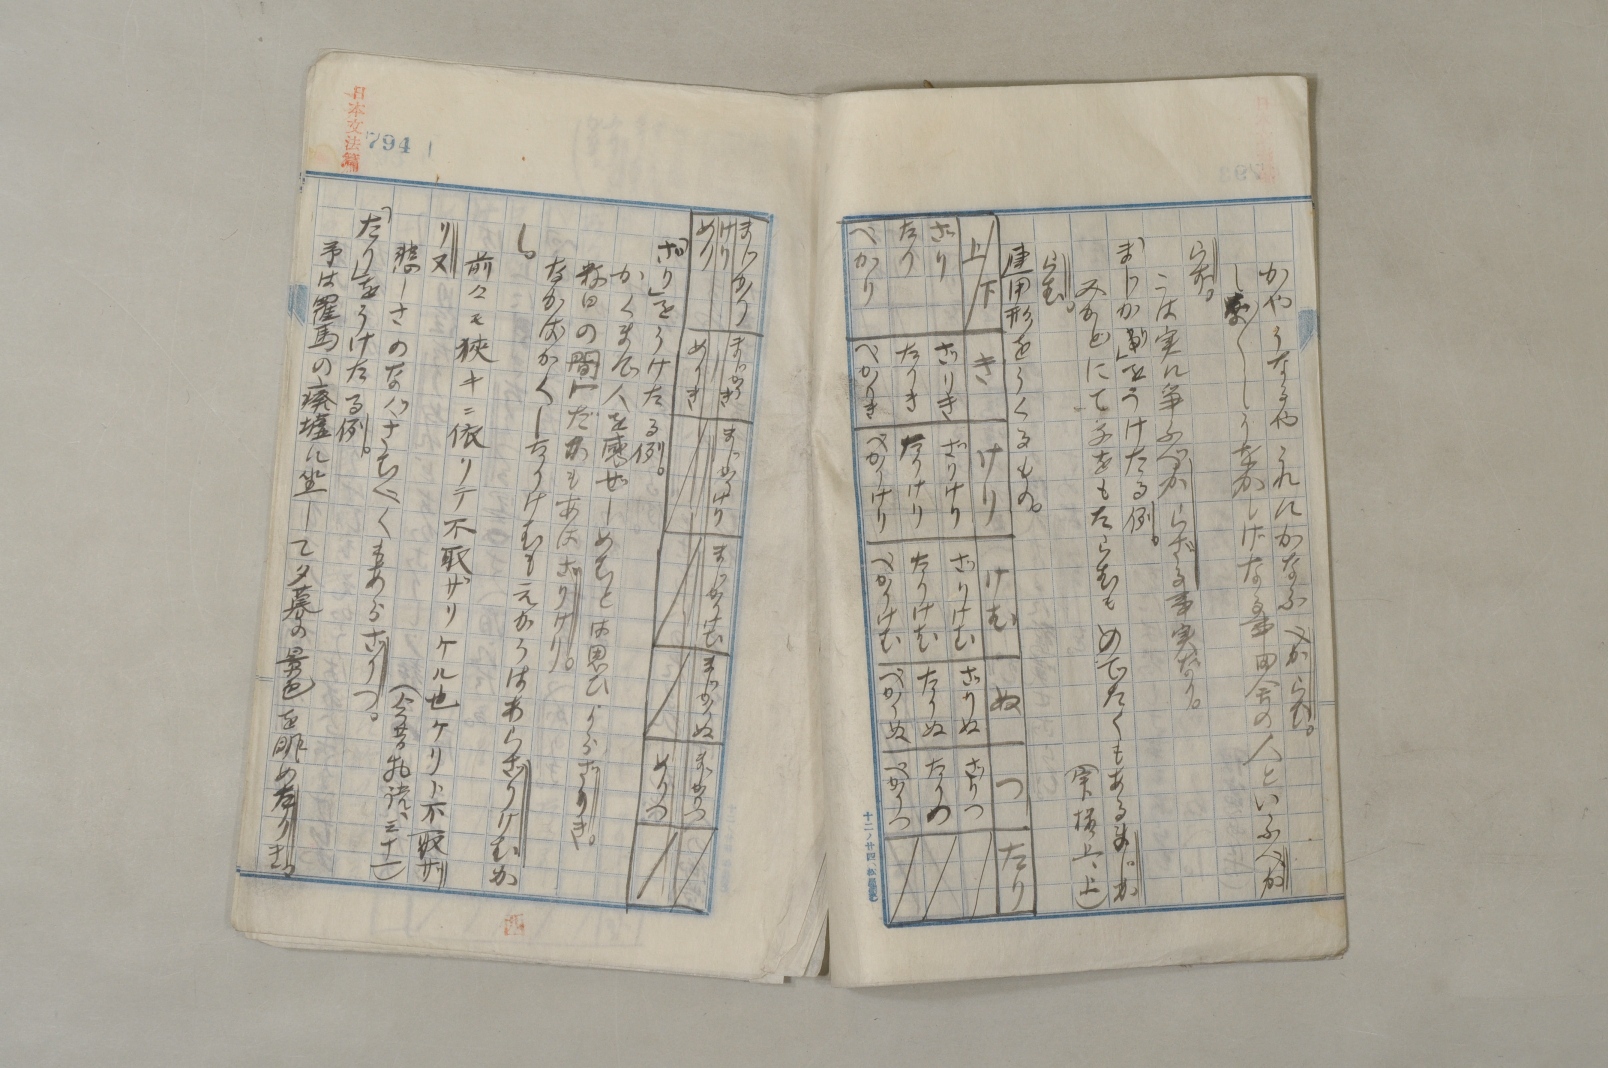 かやうなるや これにかなふ べからむ。
しなしうをかしげなる事 田舎の人といふべか
らむ。
こは実に争ふべからざる事実なり。
「まじかり」をうけたる例。
みかどにて子をもたらむも めでたくもあるまじか
らむ。
連用形をうくるもの。
上/下 き けり けむ ぬ つ たり
ざり ざりき ざりけり ざりけむ ざりぬ ざりつ
たり たりき たりけり たりけむ たりぬ たりつ
べかり べかりき べかりけり べかりけむ べかりぬ べかりつ
十二ノ廿四
まじかり まじかりき まじかりけり まじかりけむ まじかりぬ まじかりつ
けり
めり めりき めりつ
「ざり」をうけたる例。
かくまで人を感ぜしめむとは思ひよらざりき。
数日の間一だかもあはざりけり。
なかばかくしたりけむも えかうはあらざりけむか
し。
前々モ狭キニ依リテ不取ザリケル也ケリト不取ザ
リヌ
悲しさのな さむべくもあらざりつ。
(今昔物語、三十一)
「たり」をうけたる例。
予は羅馬の廃墟に坐して夕暮の景色を眺め居たりき。
日本文法論
794